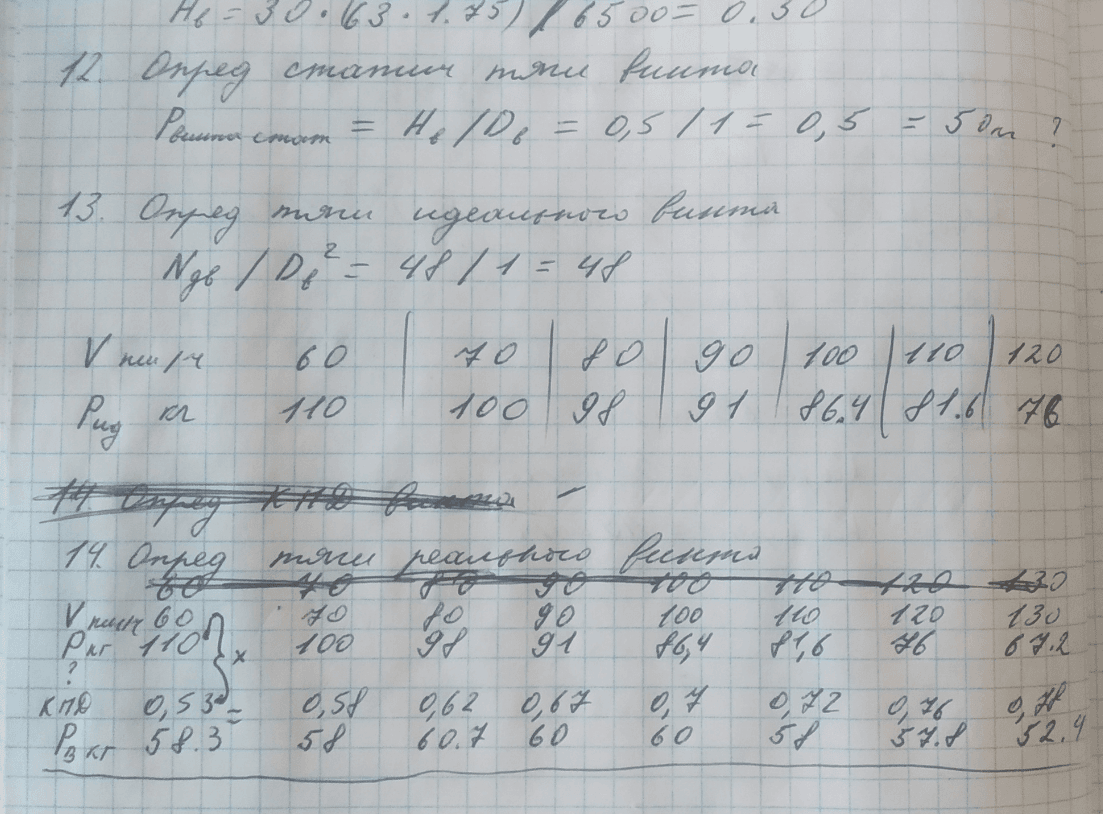 Hв = 30 · (63 · 1.75) / 6500 = 0.30
12. Опред статич тяги винта
Pвинта стат = Hв / Dв = 0,5 / 1 = 0,5 = 50кг ?
13. Опред тяги идеального винта
Nдв / Dв² = 48 / 1 = 48
V км/ч 60 70 80 90 100 110 120
Pид кг 110 100 98 91 86.4 81.6 76
14. Опред КПД винта
14. Опред тяги реального винта
60 70 80 90 100 110 120 130
V км/ч 60 70 80 90 100 110 120 130
P кг 110 x 100 98 91 86,4 81,6 76 67.2
?
КПД 0,53 = 0,58 0,62 0,67 0,7 0,72 0,76 0,78
Pв кг 58.3 58 60.7 60 60 58 57.8 52.4